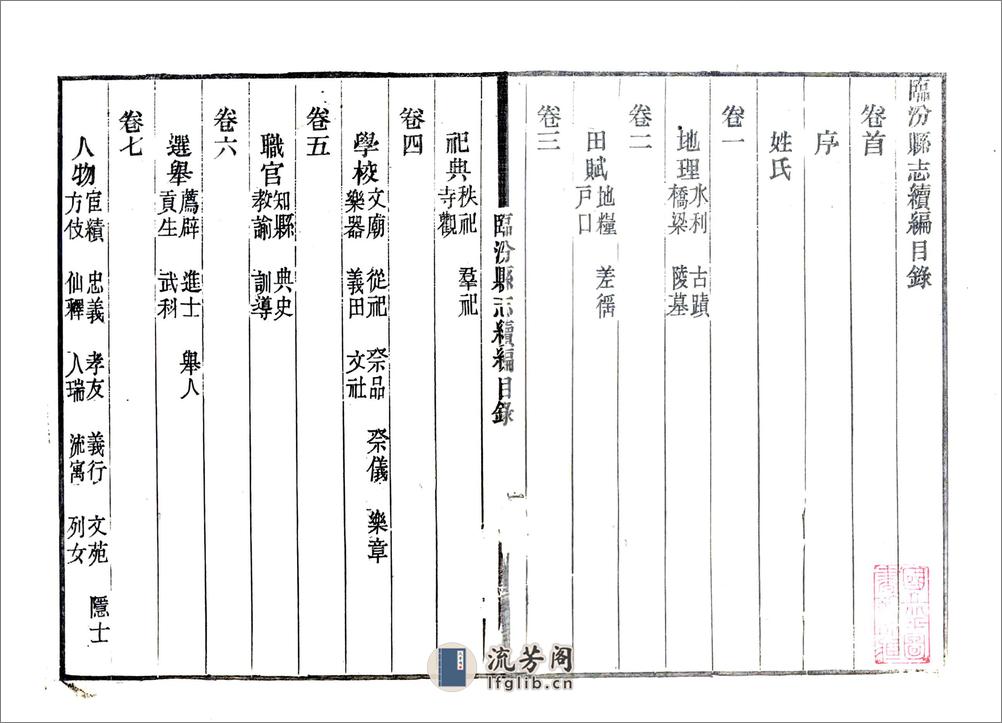 臨汾縣志續編目錄
卷首
序
姓氏
卷一
地理水利 古蹟
橋梁 陵墓
卷二
田賦地糧 差徭
戶口
卷三
臨汾縣志續編目錄
祀典秩祀 羣祀
寺觀
卷四
學校文廟 從祀 祭品 祭儀 樂章
樂器 義田 文社
卷五
職官知縣 典史
教諭 訓導
卷六
選舉薦辟 進士 舉人
貢生 武科
卷七
人物宦績 忠義 孝友 義行 文苑 隱士
方伎 仙釋 人瑞 流寓 列女
流芳阁
lfglib.cn